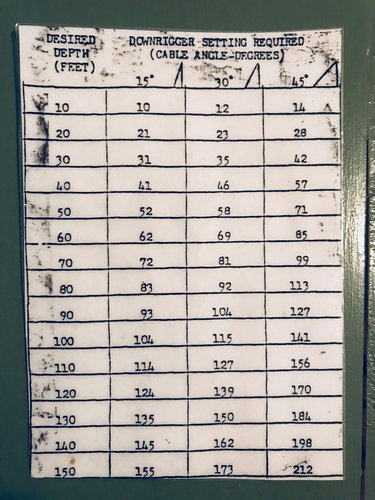 DESIRED DOWNRIGGER SETTING REQUIRED
DEPTH (CABLE ANGLE-DEGREES)
(FEET)
15° 30° 45°
10 10 12 14
20 21 23 28
30 31 35 42
40 41 46 57
50 52 58 71
60 62 69 85
70 72 81 99
80 83 92 113
90 93 104 127
100 104 115 141
110 114 127 156
120 124 139 170
130 135 150 184
140 145 162 198
150 155 173 212